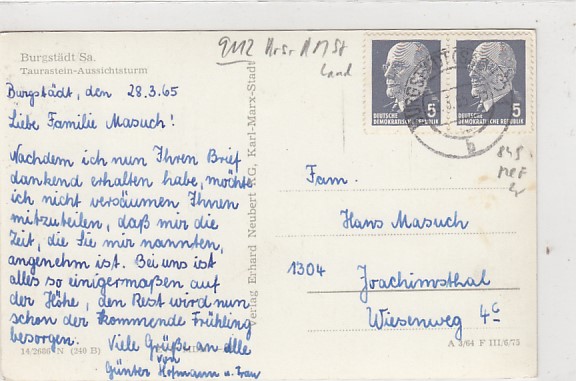 Burgstädt Sa.
Taurastein-Aussichtsturm
Burgstädt, den 28.3.65
Liebe Familie Masuch!
Nachdem ich nun Ihren Brief
dankend erhalten habe, möchte
ich nicht versäumen Ihnen
mitzuteilen, daß mir die
Zeit, die Sie mir nannten,
angenehm ist. Bei uns ist
alles so einigermaßen auf
der Höhe, den Rest wird nun
schon der kommende Frühling
besorgen. Viele Grüße an alle
von
Günter Hofmann u. Frau
14/2686 N (240 B)
Verlag Erhard Neubert KG, Karl-Marx-Stadt
9112
Land
DEUTSCHE
DEMOKRATISCHE REPUBLIK
5
DEUTSCHE
DEMOKRATISCHE REPUBLIK
5
b
845
Fam.
Hans Masuch
1304 Joachimsthal
Wiesenweg 4c
A 3/64 F III/6/75